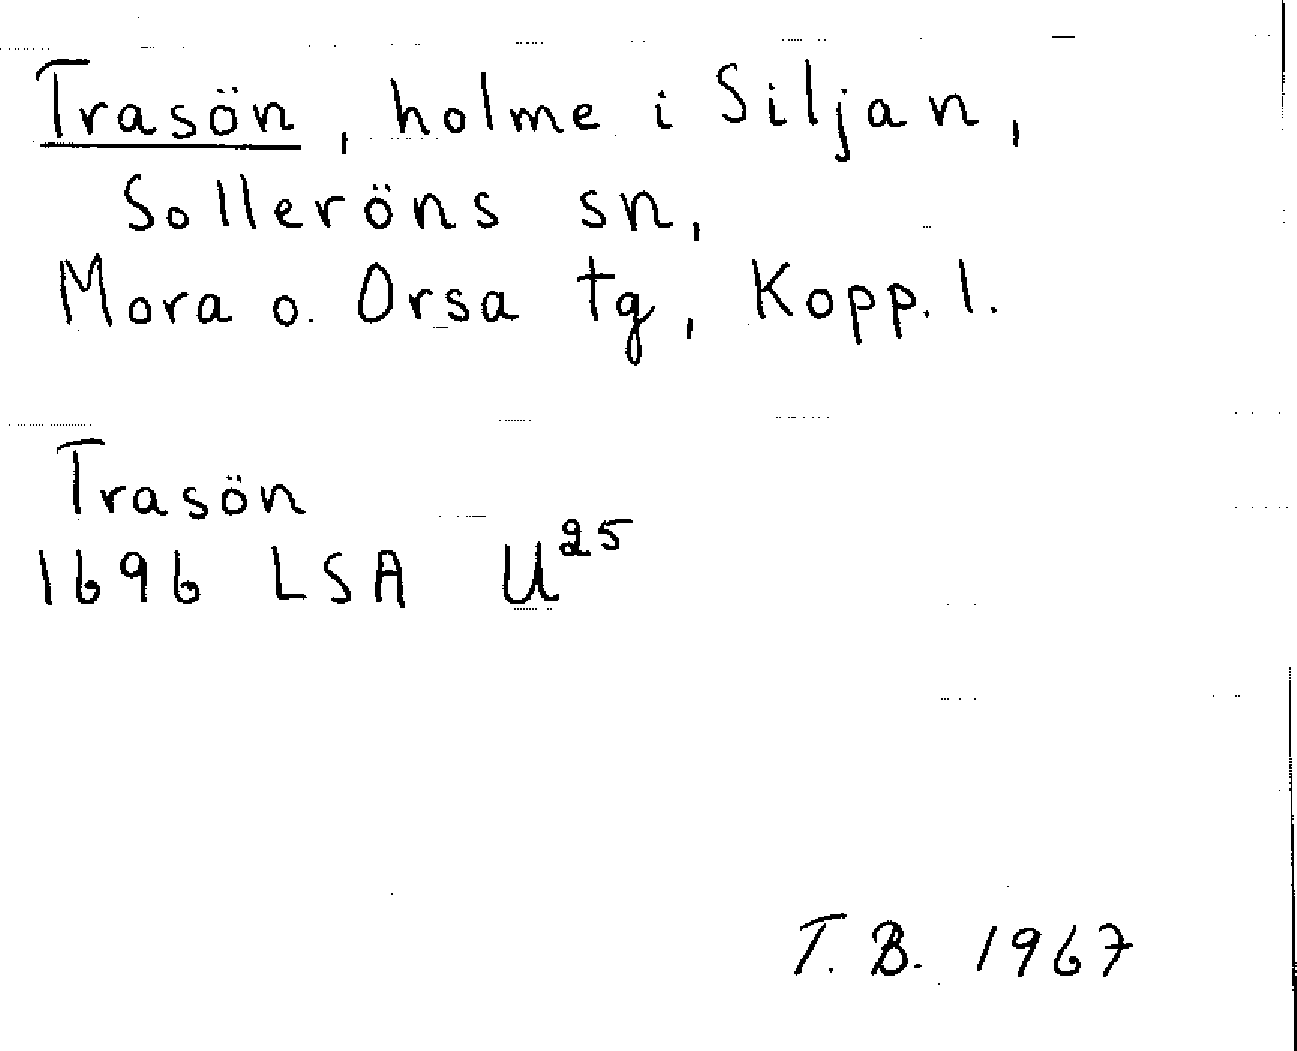 Trasön, holme i Siljan,
Solleröns sn,
Mora o. Orsa tg, Kopp. l.
Trasön
1696 LSA U²⁵
T. B. 1967